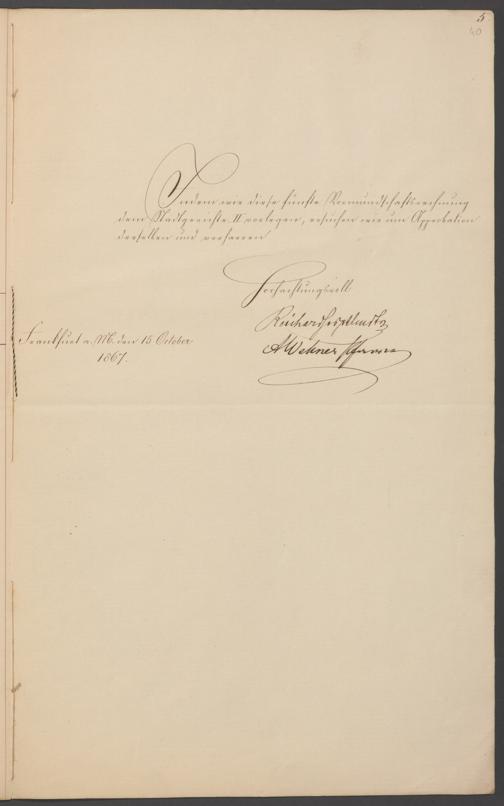 5
40
Indem wir diese fünfte Vormundschaftsrechnung
dem Stadtgerichte II vorlegen, ersuchen wir um Approbation
derselben und verharren
Hochachtungsvoll
Frankfurt a. M. den 15 October
1867.
A Wehner